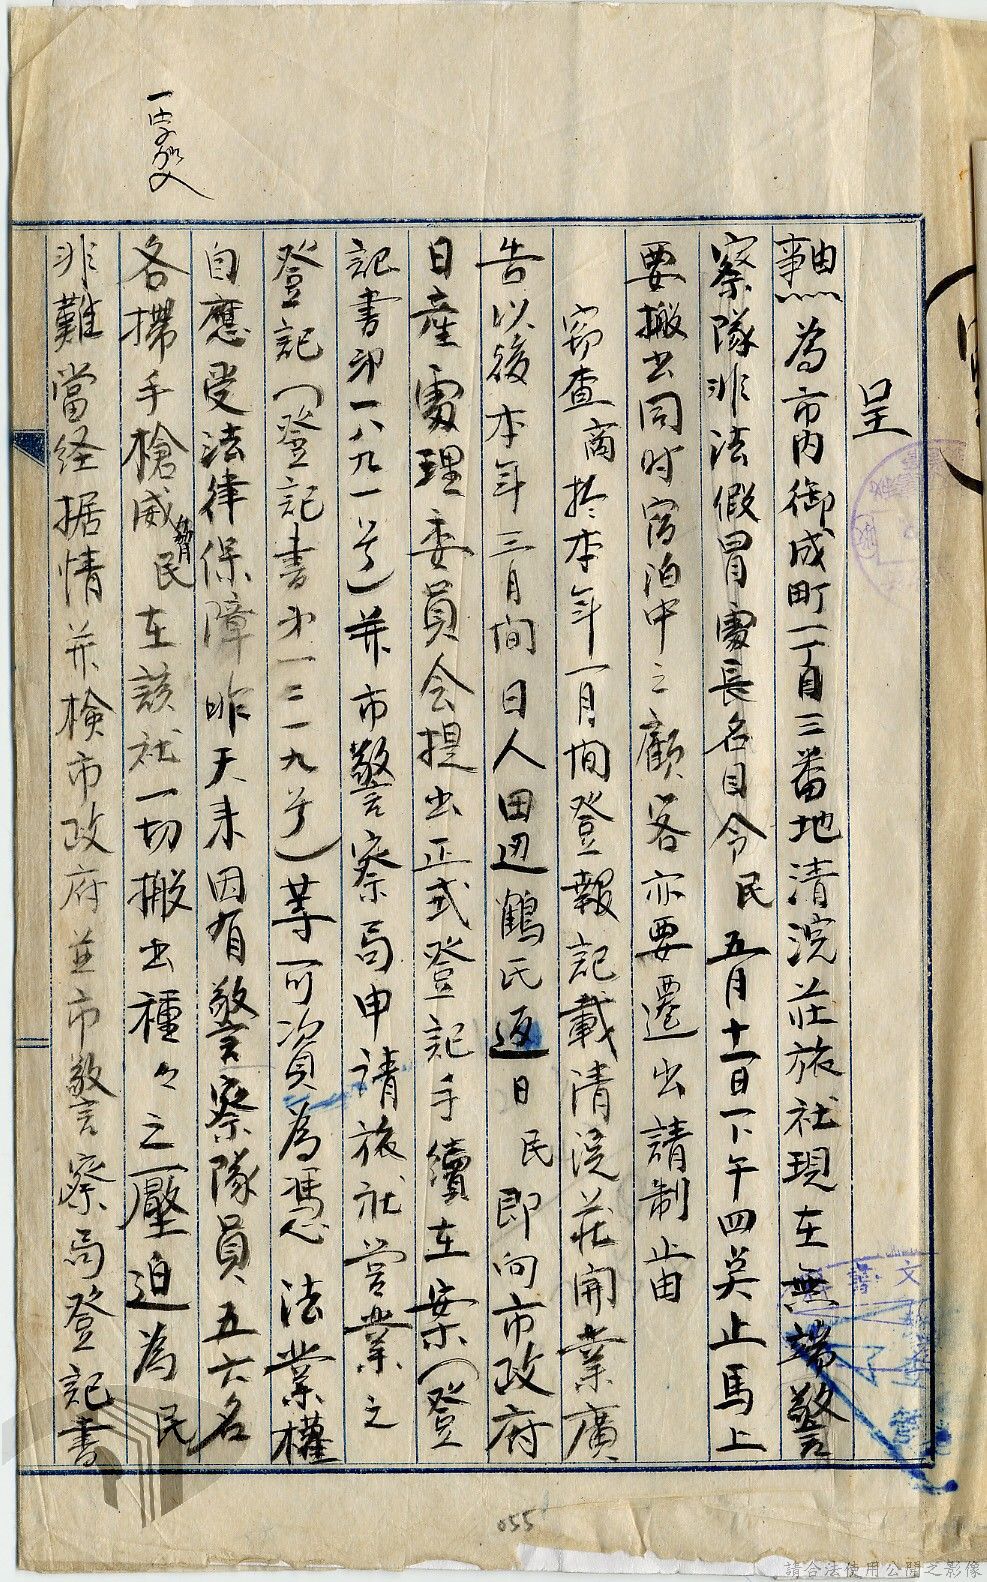 呈
事由 為市內御成町一丁目三番地清浣莊旅社現在無端警
察隊非法假冒處長名目令民五月十一日下午四奌止馬上
要搬出同时宿泊中之顧客亦要遷出請制止由
窃查商於本年一月间登報記載清浣莊開業廣
告以後本年三月间日人田边鶴氏返日民即向市政府
日產處理委員会提出正式登記手續在案(登
記書第一八九一号)并市警察局申請旅社営業之
登記(登記書第一三一九号)等可資為憑法業權
自應受法律保障昨天未因有警察隊員五六名
各携手槍威脅民在該社一切搬出種々之壓迫為民
非難當経据情并檢市政府並市警察局登記書
055
請合法使用公開之影像